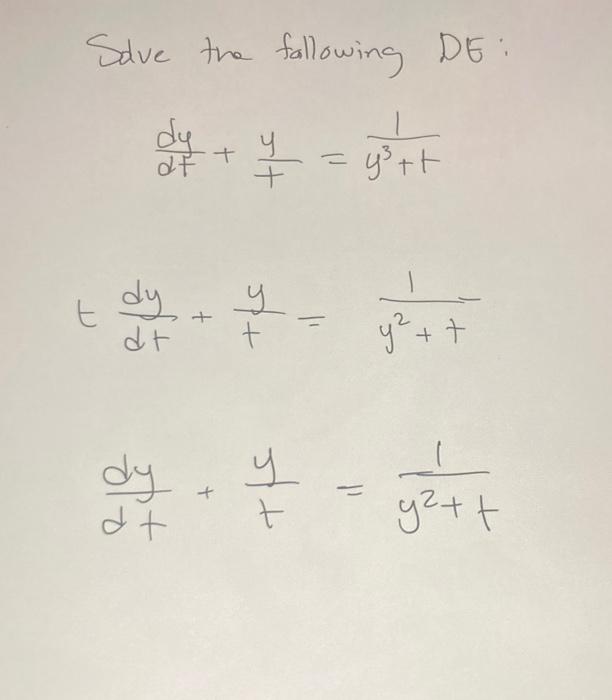 Solve the following DE:
dy/dt + y/t = 1/(y³+t)
t dy/dt + y/t = 1/(y²+t)
dy/dt + y/t = 1/(y²+t)